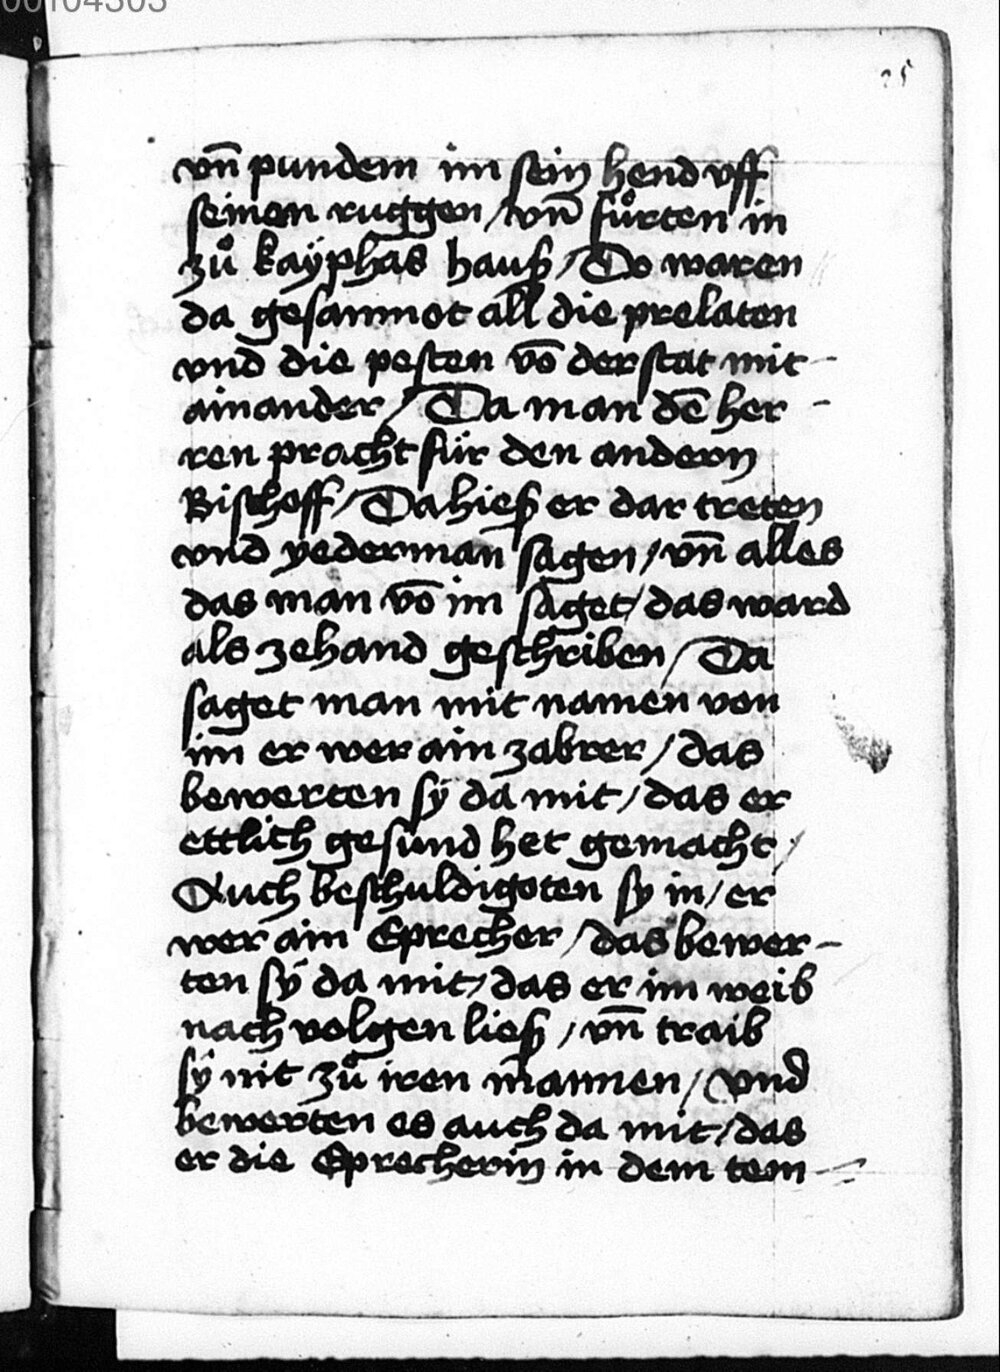 00104303
25
vn̄ pundem im sein hend vff
seinen ruggen / vn̄ fůrten in
zů kaÿphas hauß / Do waren
da gesammot all die prelaten
vnd die pesten vō der stat mit
ainander / Da man dē her
ren pracht für den andern
Bischoff / Da hieß er dar treten
vnd yederman̄ sagen / vn̄ alles
das man vō im saget / das ward
als zehand geschriben / Da
saget man mit namen von
im̄ er wer ain zabrer / das
bewerten sÿ da mit / das er
ettlich gesund het gemacht /
Auch beschuldigoten sy in / er
wer ain Eprecher / das bewer-
ten sÿ da mit / das er im weib
nach volgen ließ / vn̄ traib
sÿ nit zů iren mannen / vnd
bewerten es auch da mit / das
er die Eprecherin in dem tem-